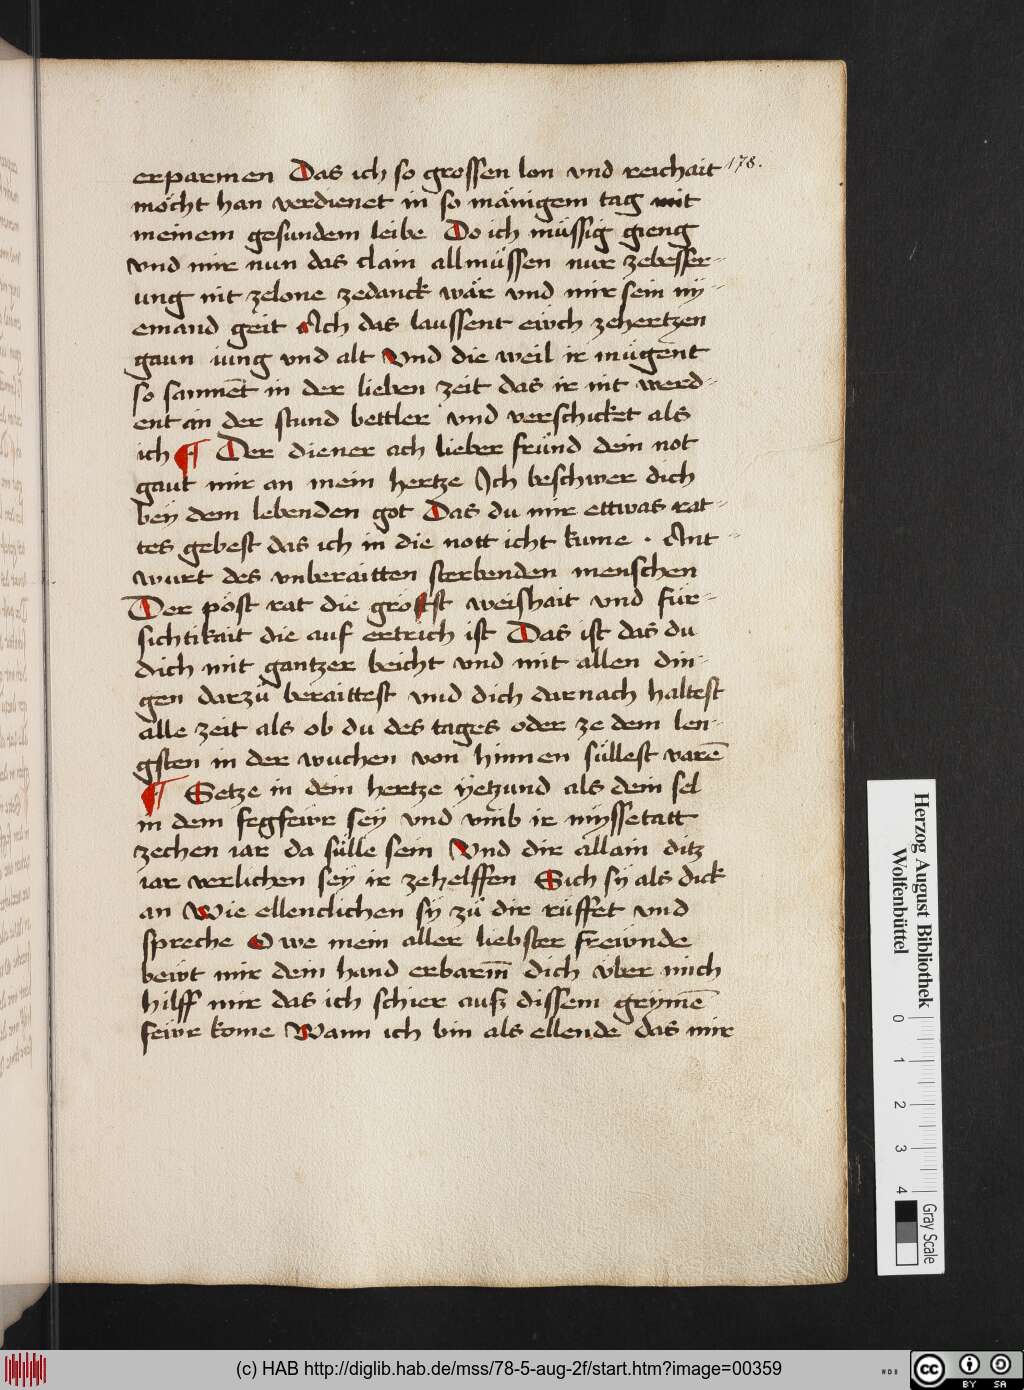 erparmen Das ich so grossen lon vnd reichait 178.
möcht han verdienet in so mänigem tag mit
meinem gesundem leibe Do ich müssig gieng
vnd mir nun das clain allmüssen nur zebesser-
ung nit zelone zedanck wär vnd mir sein ny-
emand geit Ach das laussent ewch zehertzen
gaun iung vnd alt Vnd die weil ir mügent
so samnēt in der lieben zeit das ir nit werd-
ent an der stund bettler vnd verschicket als
ich ¶ Der diener ach lieber fründ dein not
gaut mir an mein hertze Ich beschwer dich
beÿ dem lebenden got Das du mir ettwas rat-
tes gebest das ich in die nott icht kume . Ant-
wurt des vnberaitten sterbenden menschen
Der pöst rat die gröst weishait vnd für-
sichtikait die auf ertrich ist Das ist das du
dich mit gantzer beicht vnd mit allen din-
gen darzů beraittest vnd dich darnach haltest
alle zeit als ob du des tages oder ze dem len-
gsten in der wuchen von hinnen süllest varē
¶ Setze in dein hertze ÿetzund als dein sel
in dem fegfewr seÿ vnd vmb ir myssetatt
zechen iar da sülle sein Vnd dir allain ditz
iar verlichen seÿ ir zehelffen Sich sÿ als dick
an Wie ellenclichen sÿ zů dir rüffet vnd
spreche O we mein aller liebster frewnde
bewt mir dein hand erbarm̄ dich vber mich
hilff mir das ich schier ausz dissem grÿmē
fewr kome Wann ich bin als ellende das mir
Herzog August Bibliothek
Wolfenbüttel
0 1 2 3 4
Gray Scale
(c) HAB http://diglib.hab.de/mss/78-5-aug-2f/start.htm?image=00359
cc BY SA